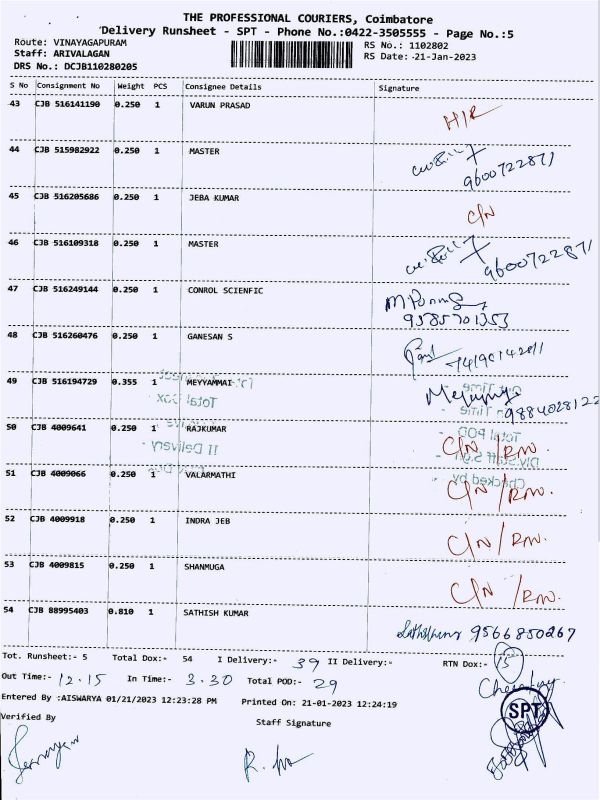 THE PROFESSIONAL COURIERS, Coimbatore
Delivery Runsheet - SPT - Phone No.:0422-3505555 - Page No.:5
Route: VINAYAGAPURAM
Staff: ARIVALAGAN
DRS No.: DCJB110280205
RS No.: 1102802
RS Date: 21-Jan-2023
S No Consignment No Weight PCS Consignee Details Signature
43 CJB 516141190 0.250 1 VARUN PRASAD
44 CJB 515982922 0.250 1 MASTER 9600722871
45 CJB 516205686 0.250 1 JEBA KUMAR C/N
46 CJB 516109318 0.250 1 MASTER 9600722871
47 CJB 516249144 0.250 1 CONROL SCIENFIC
48 CJB 516260476 0.250 1 GANESAN S
49 CJB 516194729 0.355 1 MEYYAMMAI 9884028122
50 CJB 4009641 0.250 1 RAJKUMAR C/N /RW.
51 CJB 4009066 0.250 1 VALARMATHI C/N /RW.
52 CJB 4009918 0.250 1 INDRA JEB C/N /RW.
53 CJB 4009815 0.250 1 SHANMUGA C/N /RW.
54 CJB 88995403 0.810 1 SATHISH KUMAR 9566850267
Tot. Runsheet:- 5 Total Dox:- 54 I Delivery:- 39 II Delivery:- RTN Dox:- 15
Out Time:- 12.15 In Time:- 3.30 Total POD:- 29
Entered By :AISWARYA 01/21/2023 12:23:28 PM Printed On: 21-01-2023 12:24:19
Verified By Staff Signature
SPT